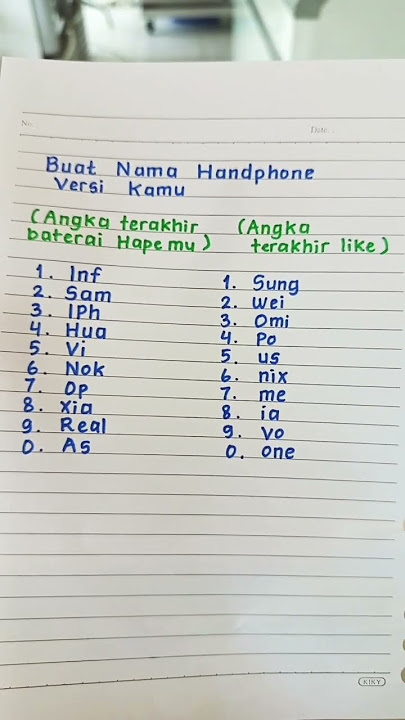 No.
Date. :
Buat Nama Handphone
Versi Kamu
(Angka terakhir
baterai Hape mu)
1. Inf
2. Sam
3. IPh
4. Hua
5. Vi
6. Nok
7. Op
8. Xia
9. Real
0. As
(Angka
terakhir like)
1. Sung
2. Wei
3. Omi
4. Po
5. us
6. nix
7. me
8. ia
9. vo
0. one
KIKY